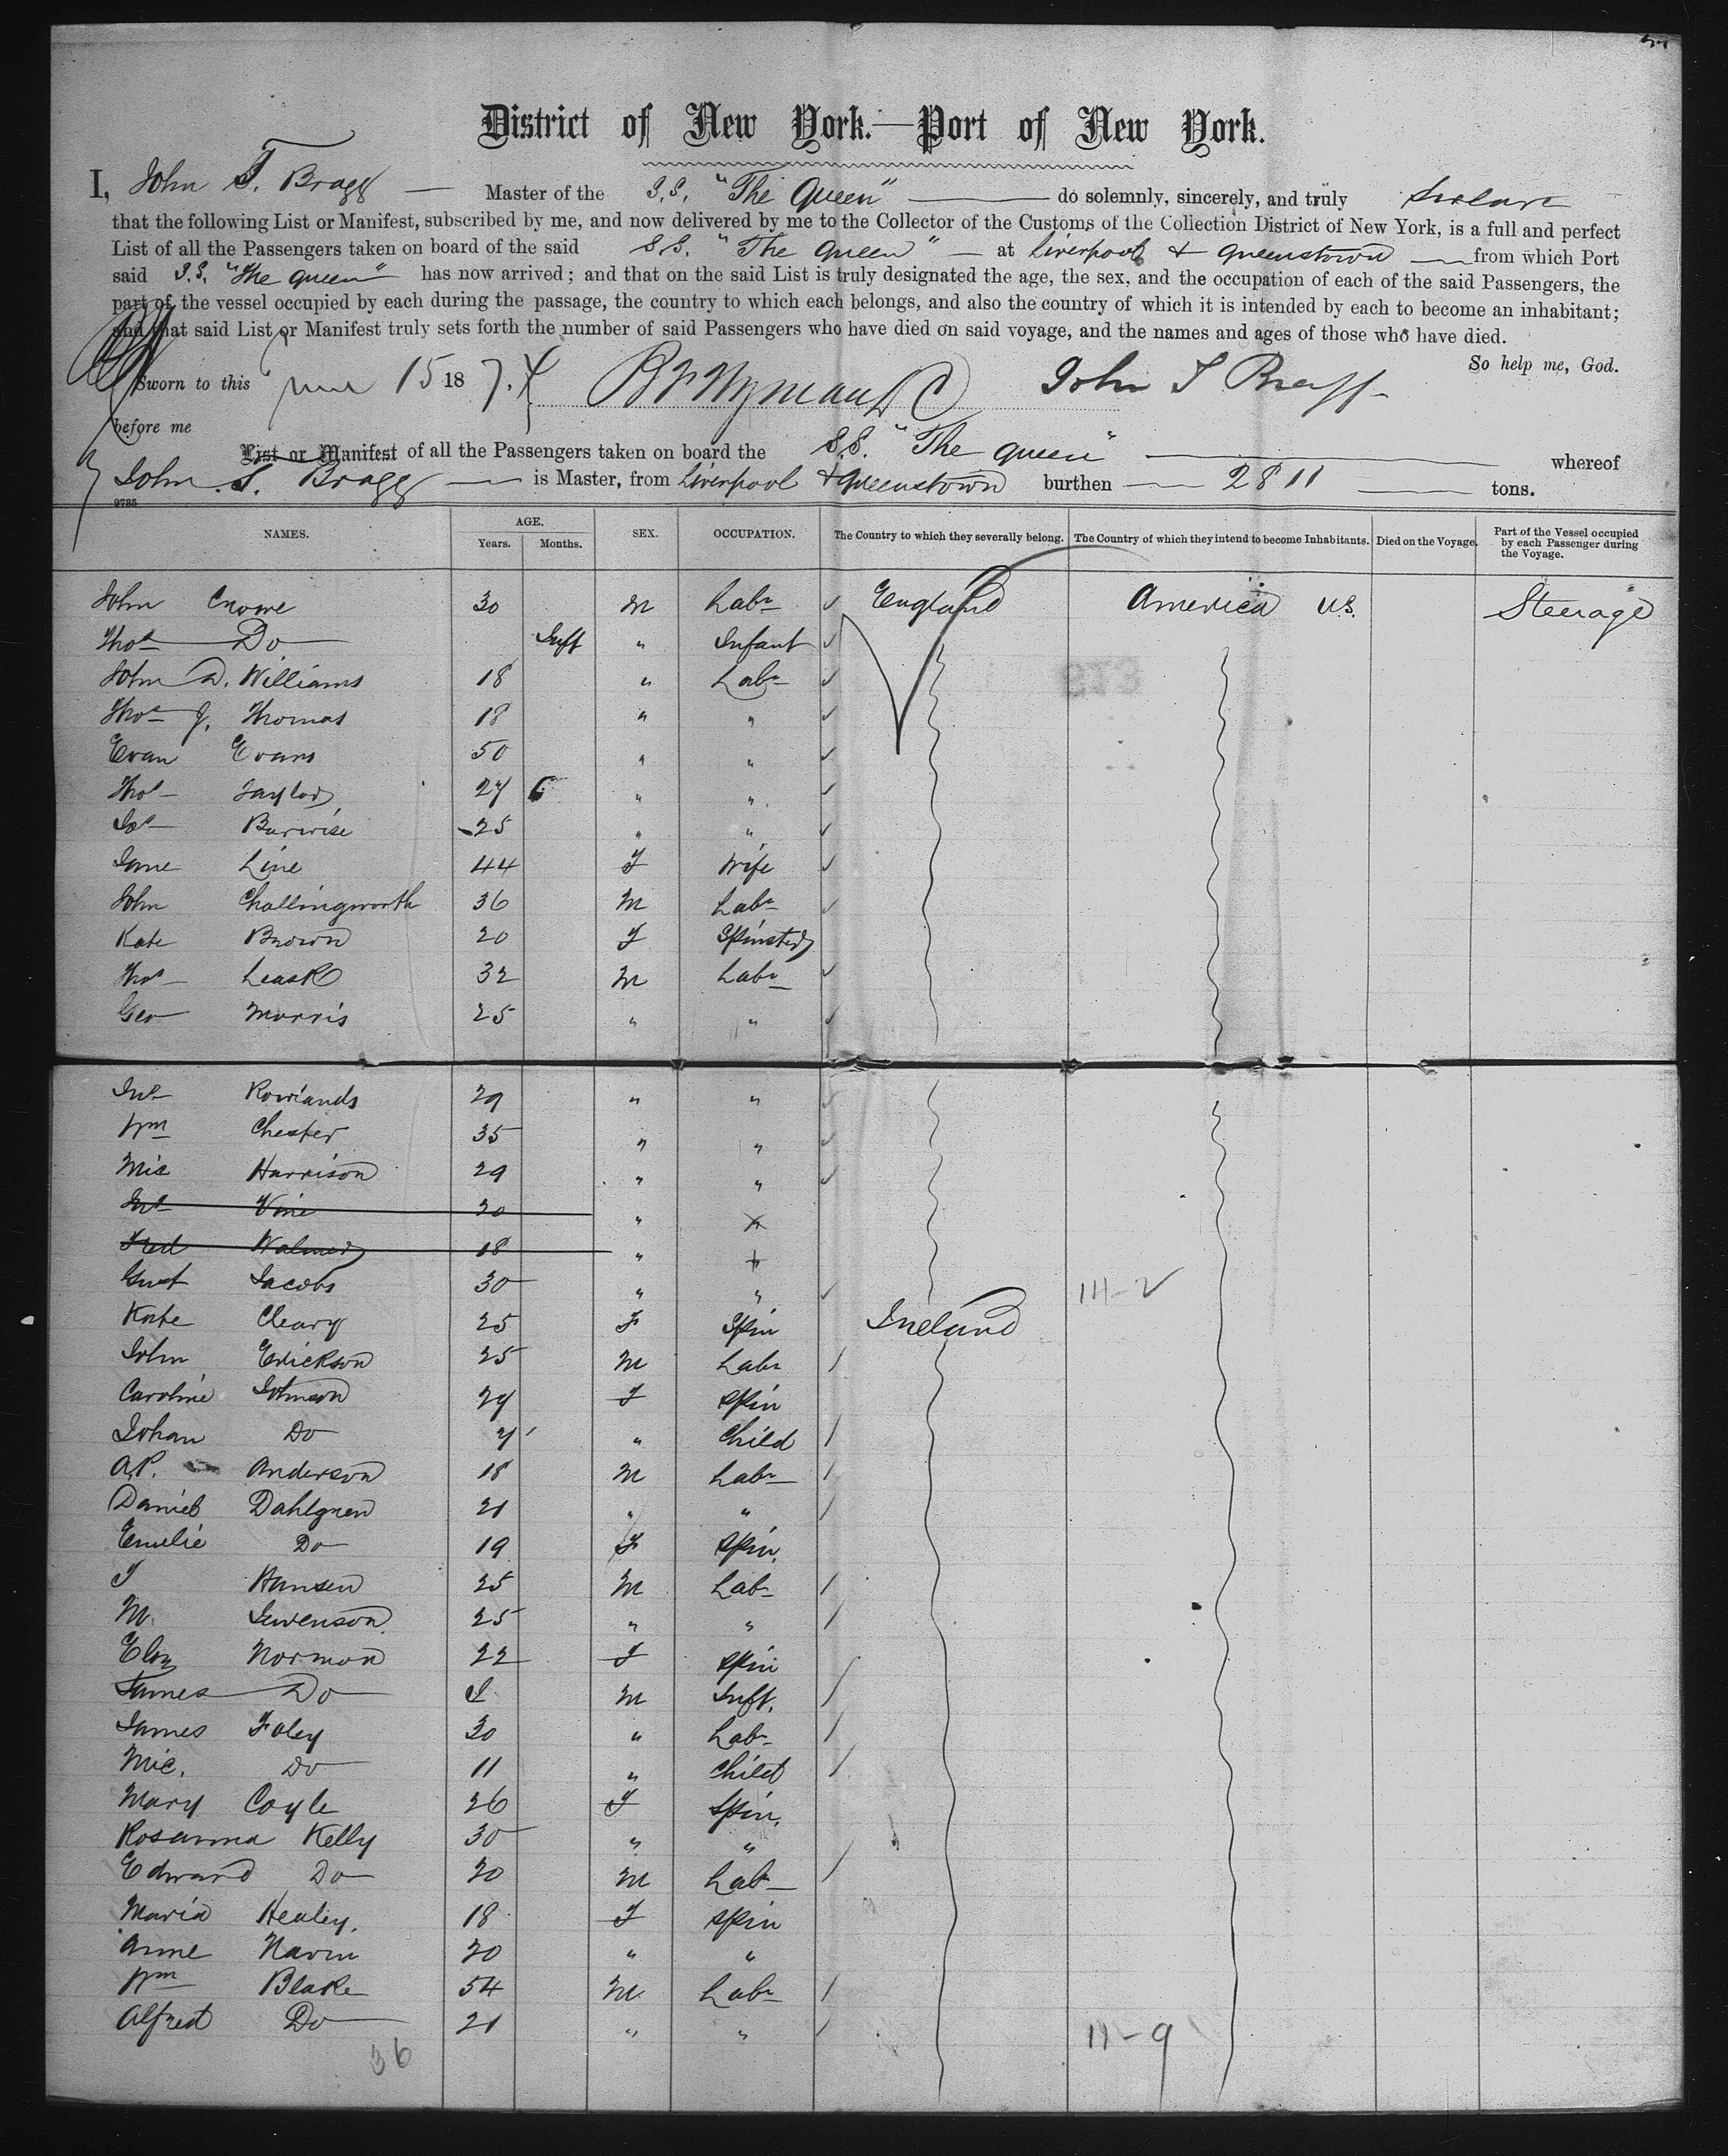 District of New York.—Port of New York.
I, John T. Bragg — Master of the S.S. "The Queen" — do solemnly, sincerely, and truly
that the following List or Manifest, subscribed by me, and now delivered by me to the Collector of the Customs of the Collection District of New York, is a full and perfect
List of all the Passengers taken on board of the said S.S. "The Queen" — at Liverpool & Queenstown — from which Port
said S.S. "The Queen" has now arrived; and that on the said List is truly designated the age, the sex, and the occupation of each of the said Passengers, the
part of the vessel occupied by each during the passage, the country to which each belongs, and also the country of which it is intended by each to become an inhabitant;
and that said List or Manifest truly sets forth the number of said Passengers who have died on said voyage, and the names and ages of those who have died.
So help me, God.
Sworn to this June 15 187.4
before me
List or Manifest of all the Passengers taken on board the S.S. "The Queen" — whereof
John T. Bragg — is Master, from Liverpool & Queenstown burthen — 2811 — tons.
9785
NAMES. AGE. Years. Months. SEX. OCCUPATION. The Country to which they severally belong. The Country of which they intend to become Inhabitants. Died on the Voyage. Part of the Vessel occupied by each Passenger during the Voyage.
John Crowe 30 M Labr England America U.S. Steerage
Thos Do Inft " Infant
John D. Williams 18 " Labr
Thos J. Thomas 18 " "
Evan Evans 50 " "
Thos Taylor 27 6 " "
Jos Burwise 25 " "
Jane Line 44 F Wife
John Chollingworth 36 M Labr
Kate Brown 20 F Spinster
Thos Leask 32 M Labr
Geo Morris 25 " "
Jno Rowlands 29 " "
Wm Chester 35 " "
Mic Harrison 29 " "
Jno Vine 30 "
Fred 18 "
Gust Jacobs 30 " " 111-2
Kate Cleary 25 F Spin Ireland
John Erickson 25 M Labr
Caroline Johnson 27 F Spin
Johan Do 7 " Child
A.P. Anderson 18 M Labr
Daniel Dahlgren 21 " "
Emelie Do 19 F Spin.
J Hansen 25 M Labr
M. Swenson 25 " "
Eliz Norman 22 F Spin
James Do M Inft.
James Foley 30 " Labr
Mic. Do 11 " Child
Mary Coyle 26 F Spin.
Rosanna Kelly 30 " "
Edward Do 20 M Labr
Maria Healey. 18 F Spin
Anne Navin 20 " "
Wm Blake 54 M Labr
Alfred Do 21 " " 11-9
36